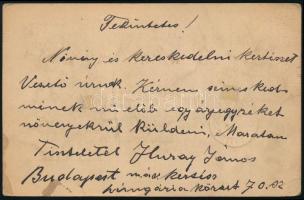 Tekintetes!
Növény és kereskedelmi kertészet
Vezető úrnak. Kérném szíves ked-
mének mielőbb egy árjegyzéket
növényekrül küldeni, Maradtam
Tisztelettel Huray János
Budapest műkertész
hungária körut 70.